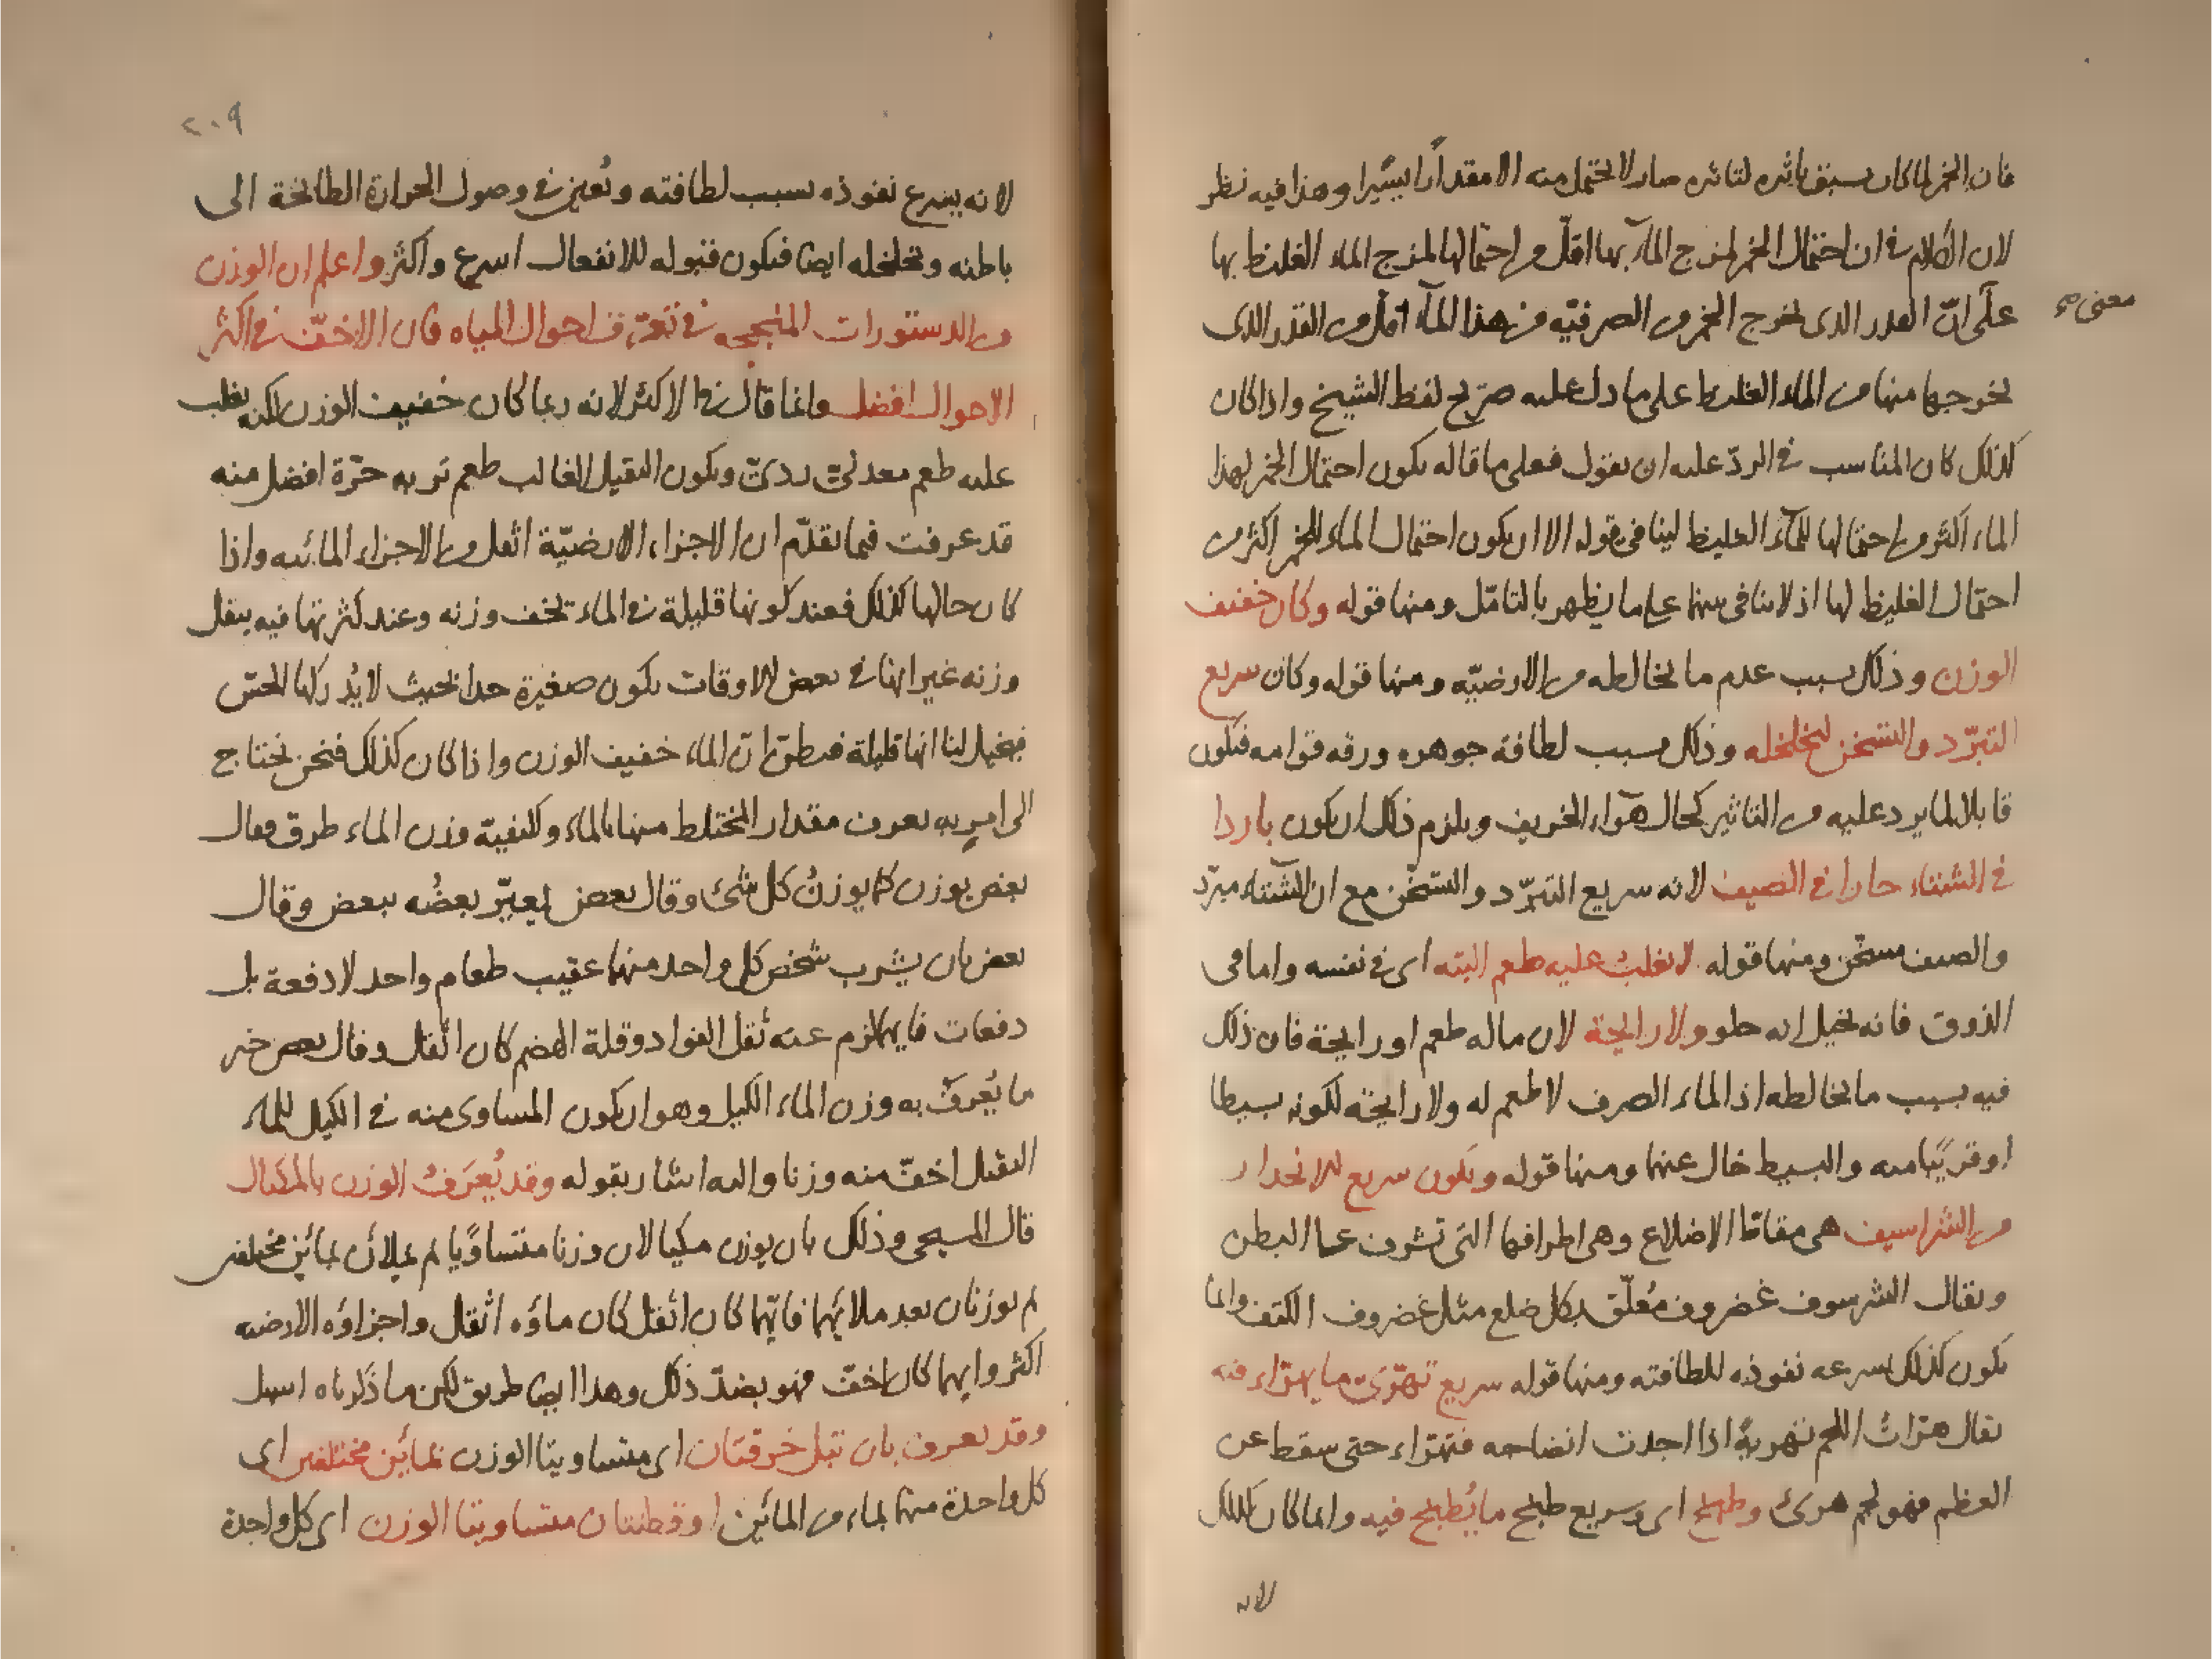 فان الخمر لما كان يسبق تاثيره لتاثيره صار لا يحتمل منه الا مقدارا يسيرا وهذا فيه نظر
لان الكلام في ان احتمال الخمر لمزج المآء بها اقلّ من احتمالها لمزج الماء الغليظ بها
معنى صح
على انّ القدر الذى يخرج الخمر من الصرفيّه من هذا المآء اقل من القدر الذى
يخرجها منها من الماء الغليظ على ما دل عليه صريح لفظ الشيخ واذا كان
كذلك كان المناسب في الردّ عليه ان يقول فعلى ما قاله يكون احتمال الخمر لهذا
الماء اكثر من احتمالها للمآء الغليظ لينافى قوله الا ان يكون احتمال الماء للخمر اكثر من
احتمال الغليظ لها اذ لا ينافى بينهما على ما يظهر بالتامّل ومنها قوله وكان خفيف
الوزن وذلك بسبب عدم ما يخالطه من الارضيّه ومنها قوله وكان سريع
التبرّد والتسخن لتخلخله وذلك بسبب لطافة جوهره ورقه قوامه فيكون
قابلا لما يرد عليه من التاثير كحال هوآء الخريف ويلزم ذلك ان يكون باردا
في الشتاء حارا في الصيف لانه سريع التبرّد والتسخّن مع ان الشتاء مبرّد
والصيف مسخّن ومنها قوله لا يغلب عليه طعم البته اى في نفسه واما فى
الذوق فانه يخيل انه حلو ولا رايحة لان ما له طعم او رايحة فان ذلك
فيه بسبب ما يخالطه اذ الماء الصرف لا طعم له ولا رايحة لكونه بسيطا
او قريبًا منه والبسيط خال عنهما ومنها قوله ويكون سريع الانحدار
من الشراسيف هى مقاطّ الاضلاع وهى اطرافها التى تشرف على البطن
ويقال الشرسوف غضروف مُعلّق بكل ضلع مثل غضروف الكتف وانما
يكون كذلك لسرعه نفوذه للطافته ومنها قوله سريع تهرّى ما يهرّاء فيه
يقال هرّات اللحم تهريةً اذا اجدت انضاجه فتهرّاء حتى سقط عن
العظم فهو لحم هرئ وطبخ اى وسريع طبخ ما يُطبخ فيه وانما كان كذلك
لانه
٢٠٩
لانه يسرع نفوذه بسبب لطافته ونُعين في وصول الحرارة الطابخة الى
باطنه وتخلخله ايضا فيكون قبوله للانفعال اسرع واكثر واعلم ان الوزن
من الدستورات المنجحه في تعرّف احوال المياه فان الاخفّ في اكثر
الاحوال افضل وانما قال في الاكثر لانه ربما كان خفيف الوزن لكنه يغلب
عليه طعم معدنىّ ردىّ ويكون الثقيل الغالب طعم تربه حرّة افضل منه
قد عرفت فيما تقدّم ان الاجزاء الارضيّة اثقل من الاجزاء المائيه واذا
كان حالها كذلك فعند كونها قليلة في الماء يخف وزنه وعند كثرتها فيه يثقل
وزنه غير انها في بعض الاوقات يكون صغيرة جدا بحيث لا يُدركها الحسّ
فيخيل لنا انها قليلة فيظنّ انّ الماء خفيف الوزن واذا كان كذلك فنحن نحتاج
الى امر به يعرف مقدار المختلط منها بالماء وكيفيّة وزن الماء طرق فقال
بعض يوزن كما يوزنُ كل شئ وقال بعض يعيّر بعضُه ببعض وقال
بعض بان يشرب شخص كل واحد منهما عقيب طعام واحد لا دفعة بل
دفعات فايهما لزم عنه ثقل الفواد وقلة الهضم كان اثقل وقال بعض خير
ما يُعرف به وزن الماء الكيل وهو ان يكون المساوى منه في الكيل للماء
الثقيل اخفّ منه وزنا واليه اشار بقوله وقد يُعرَف الوزن بالمكيال
قال المسيحى وذلك بان يوزن مكيالان وزنا متساويًا ثم يملائن بمائين مختلفين
ثم يوزنان بعد ملائهما فايّهما كان اثقل كان ماؤه اثقل واجزاؤه الارضيه
اكثر وايهما كان اخفّ فهو بضدّ ذلك وهذا ايضا طريق لكن ما ذكرناه اسهل
وقد يعرف بان تبل خرقتان اى متساويتا الوزن بمائين مختلفين اى
كل واحدة منهما بماء من المائين او قطنتان متساويتا الوزن اى كل واحدة